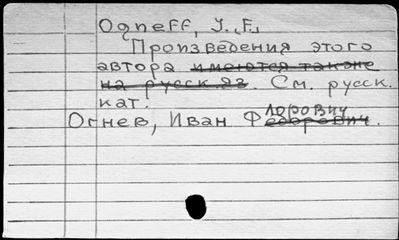 Ogneff, J. F.
Произведения этого
автора имеются также
на русск. яз. См. русск.
кат.
Огнев, Иван Федорович.
лорович